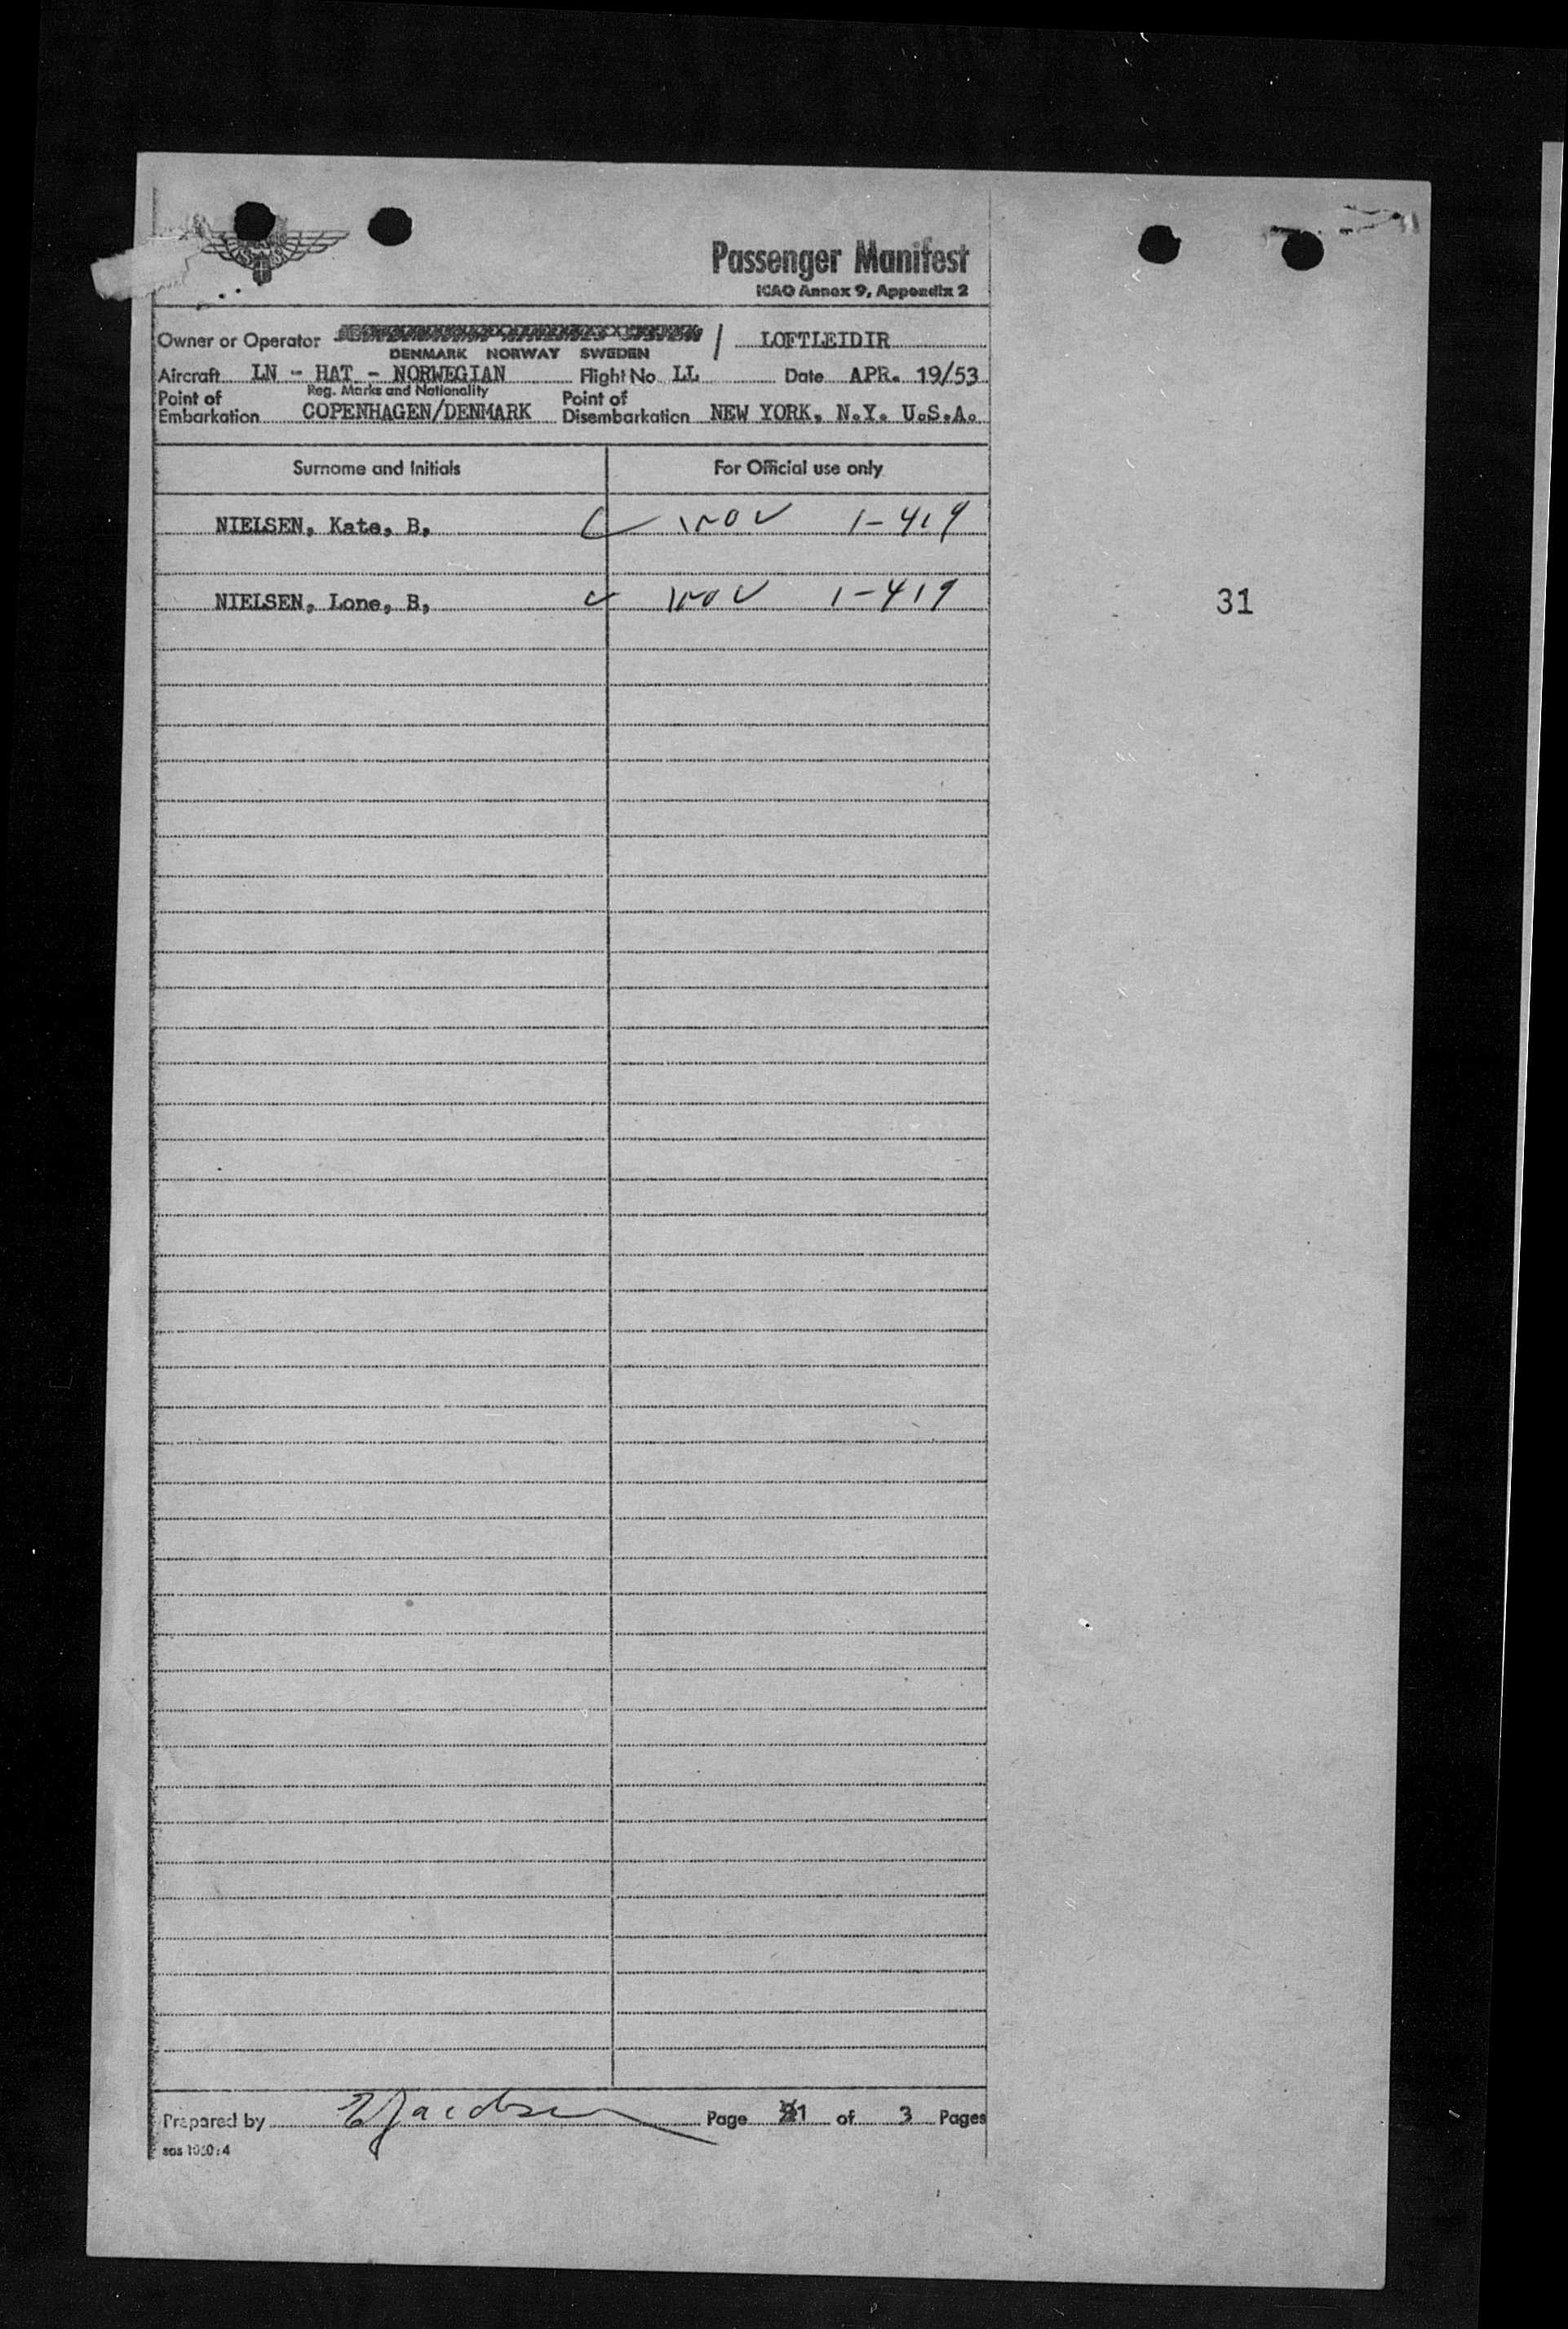 Passenger Manifest
ICAO Annex 9, Appendix 2
Owner or Operator / LOFTLEIDIR
DENMARK NORWAY SWEDEN
Aircraft LN - HAT - NORWEGIAN Flight No LL Date APR. 19/53
Reg. Marks and Nationality
Point of Embarkation COPENHAGEN/DENMARK Point of Disembarkation NEW YORK, N.Y. U.S.A.
Surname and Initials For Official use only
NIELSEN, Kate, B, 1-419
NIELSEN, Lone, B, 1-419
31
Prepared by Page 1 of 3 Pages